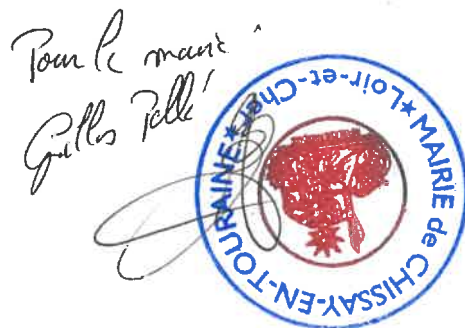 Pour le maire
Gilles
MAIRIE de CHISSAY-EN-TOURAINE
★Loir-et-Cher★